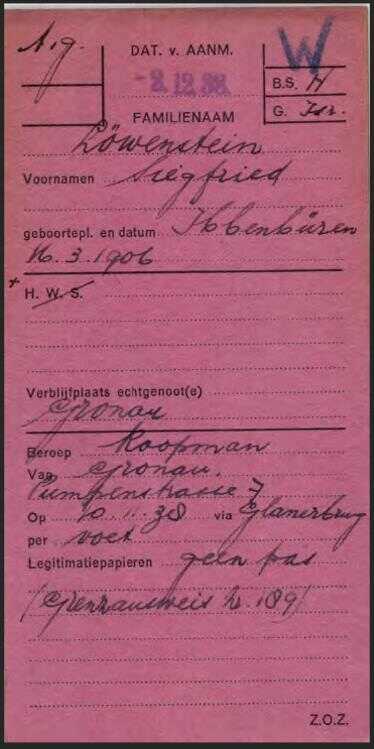 A.g.
DAT. v. AANM.
-2.12.38.
W
B.S. H
G. Isr.
FAMILIENAAM
Löwenstein
Voornamen Siegfried
geboortepl. en datum Ibbenbüren
16.3.1906
+
H. W. S.
Verblijfplaats echtgenoot(e)
Gronau
Beroep Koopman
Van Gronau.
Pumpenstrasse 7
Op 10.11.38 via Glanerbrug
per voet
Legitimatiepapieren geen pas
(Grenzausweis 189)
Z.O.Z.